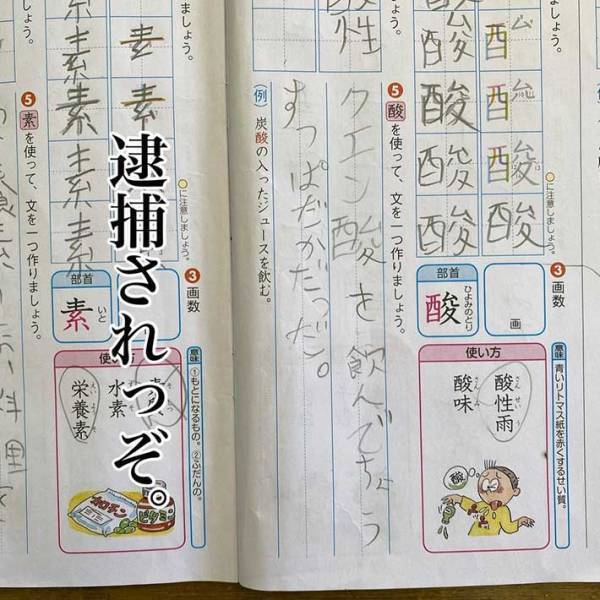 ましょう。
酸 酸 酸
酸 酸 酸 酸
酸性
❸画数
画
部首
酸
ひよみのとり
意味
青いリトマス紙を赤くするせい質。
使い方
酸性雨
酸味
酸
❺酸を使って、文を一つ作りましょう。
クエン酸を飲んでちょう
すっぱだがだっだ。
(例)炭酸の入ったジュースを飲む。
ましょう。
○に注意しましょう。
素 素
素 素 素 素 素
❸画数
部首
素
いと
意味
①もとになるもの。②ふだんの。
使い方
水素
栄養素
カロチン
ビタミン
❺素を使って、文を一つ作りましょう。
逮捕されっぞ。